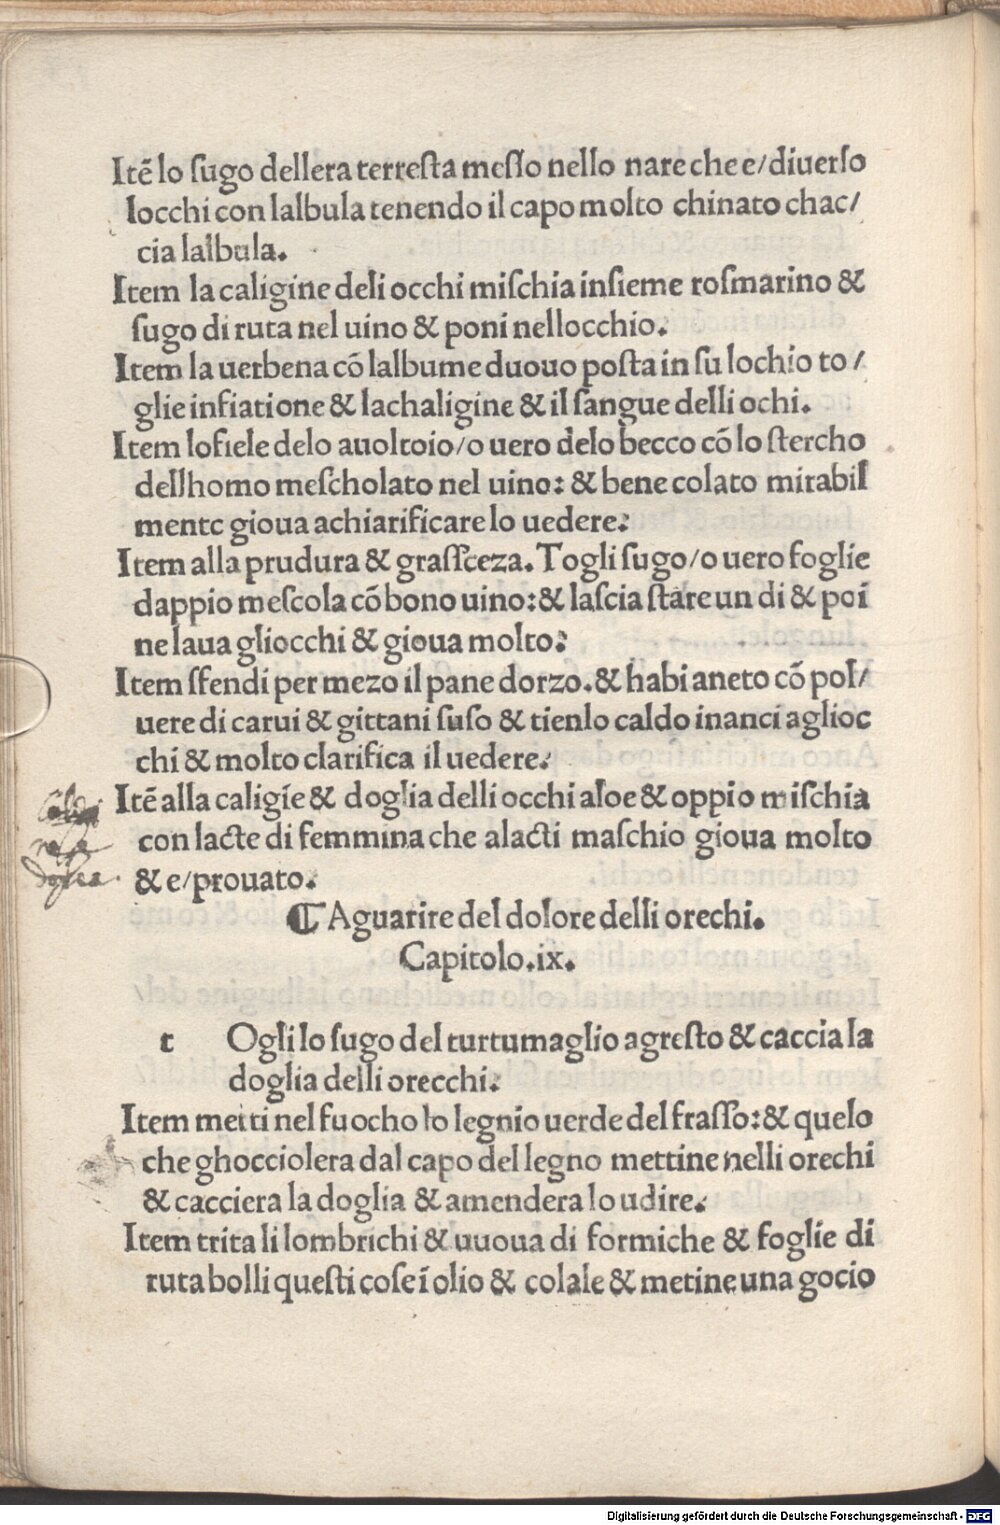 Itē lo ſugo dellera terreſta meſſo nello nare che e/diuerſo
locchi con lalbula tenendo il capo molto chinato chac/
cia lalbula.
Item la caligine deli occhi miſchia inſieme roſmarino &
ſugo di ruta nel uino & poni nellocchio.
Item la uerbena cō lalbume duouo poſta in ſu lochio to/
glie infiatione & lachaligine & il ſangue delli ochi.
Item lofiele delo auoltoio/o uero delo becco cō lo ſtercho
dellhomo meſcholato nel uino: & bene colato mirabil
mente gioua achiarificare lo uedere:
Item alla prudura & graſſceza. Togli ſugo/o uero foglie
dappio meſcola cō bono uino: & laſcia ſtare un di & poi
ne laua gliocchi & gioua molto:
Item ſfendi per mezo il pane dorzo. & habi aneto cō pol/
uere di carui & gittani ſuſo & tienlo caldo inanci aglioc
chi & molto clarifica il uedere:
Itē alla caligīe & doglia delli occhi aloe & oppio miſchia
con lacte di femmina che alacti maſchio gioua molto
& e/prouato:
¶ Aguarire del dolore delli orechi.
Capitolo.ix.
t Ogli lo ſugo del turtumaglio agreſto & caccia la
doglia delli orecchi:
Item metti nel fuocho lo legnio uerde del fraſſo: & quelo
che ghocciolera dal capo del legno mettine nelli orechi
& cacciera la doglia & amendera lo udire:
Item trita li lombrichi & uuoua di formiche & foglie di
ruta bolli queſti coſe ī olio & colale & metine una gocio
Digitalisierung gefördert durch die Deutsche Forschungsgemeinschaft - DFG